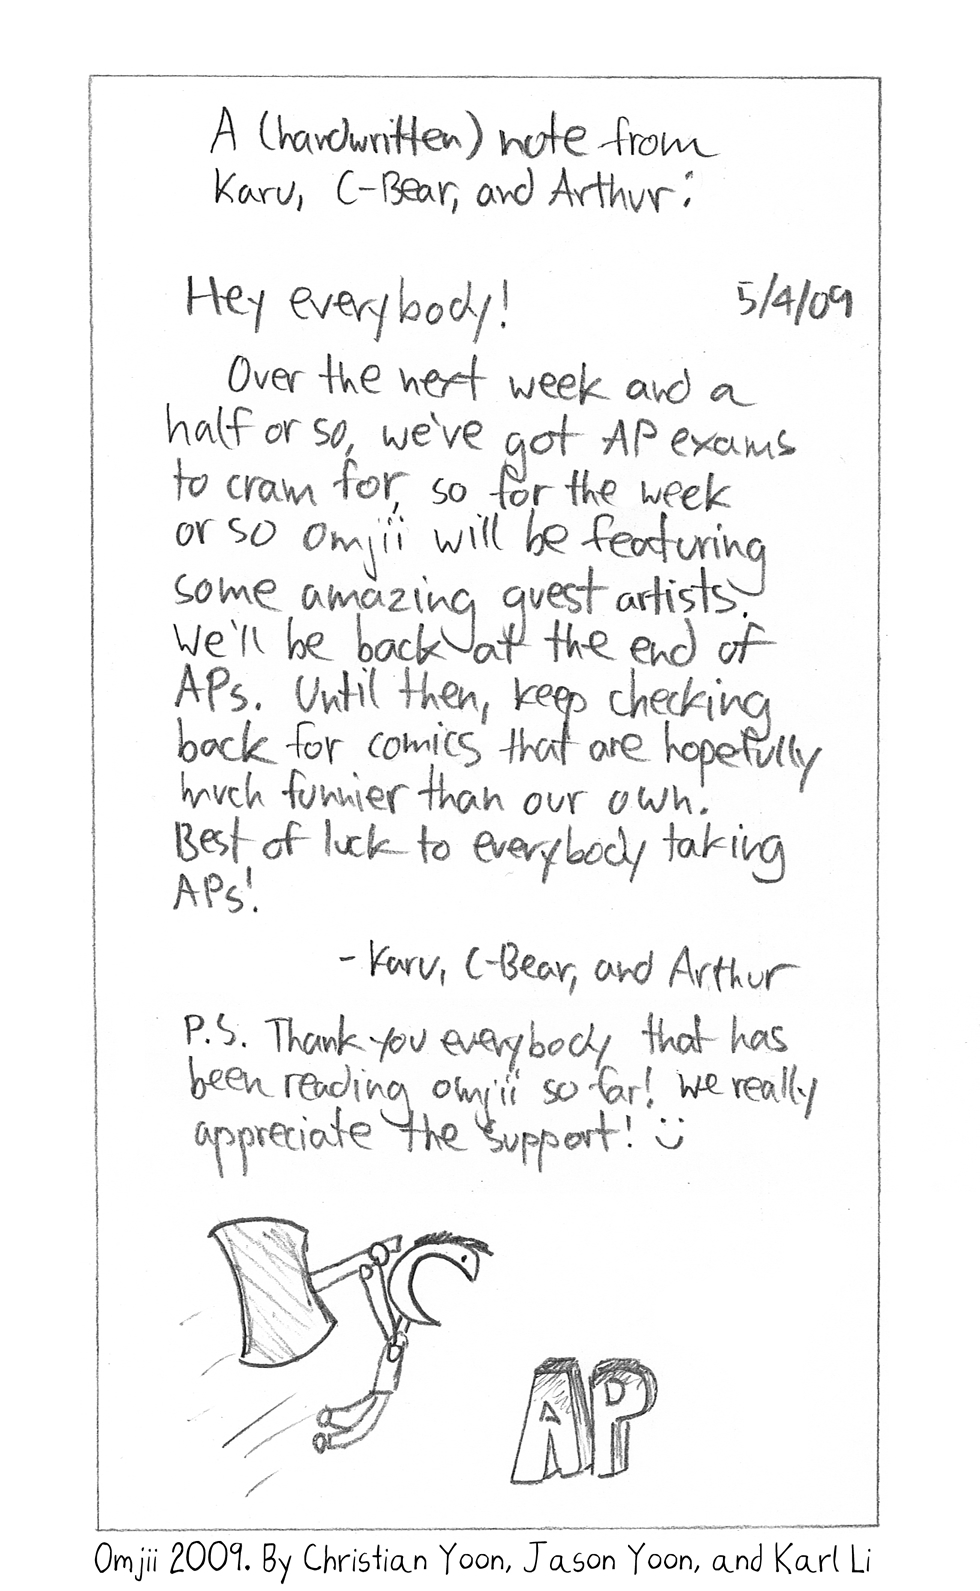 A (handwritten) note from
Karu, C-Bear, and Arthur:
Hey everybody! 5/4/09
Over the next week and a
half or so, we've got AP exams
to cram for, so for the week
or so Omjii will be featuring
some amazing guest artists.
We'll be back at the end of
APs. Until then, keep checking
back for comics that are hopefully
much funnier than our own.
Best of luck to everybody taking
APs!
- Karu, C-Bear, and Arthur
P.S. Thank you everybody that has
been reading omjii so far! We really
appreciate the support! :)
AP
Omjii 2009. By Christian Yoon, Jason Yoon, and Karl Li